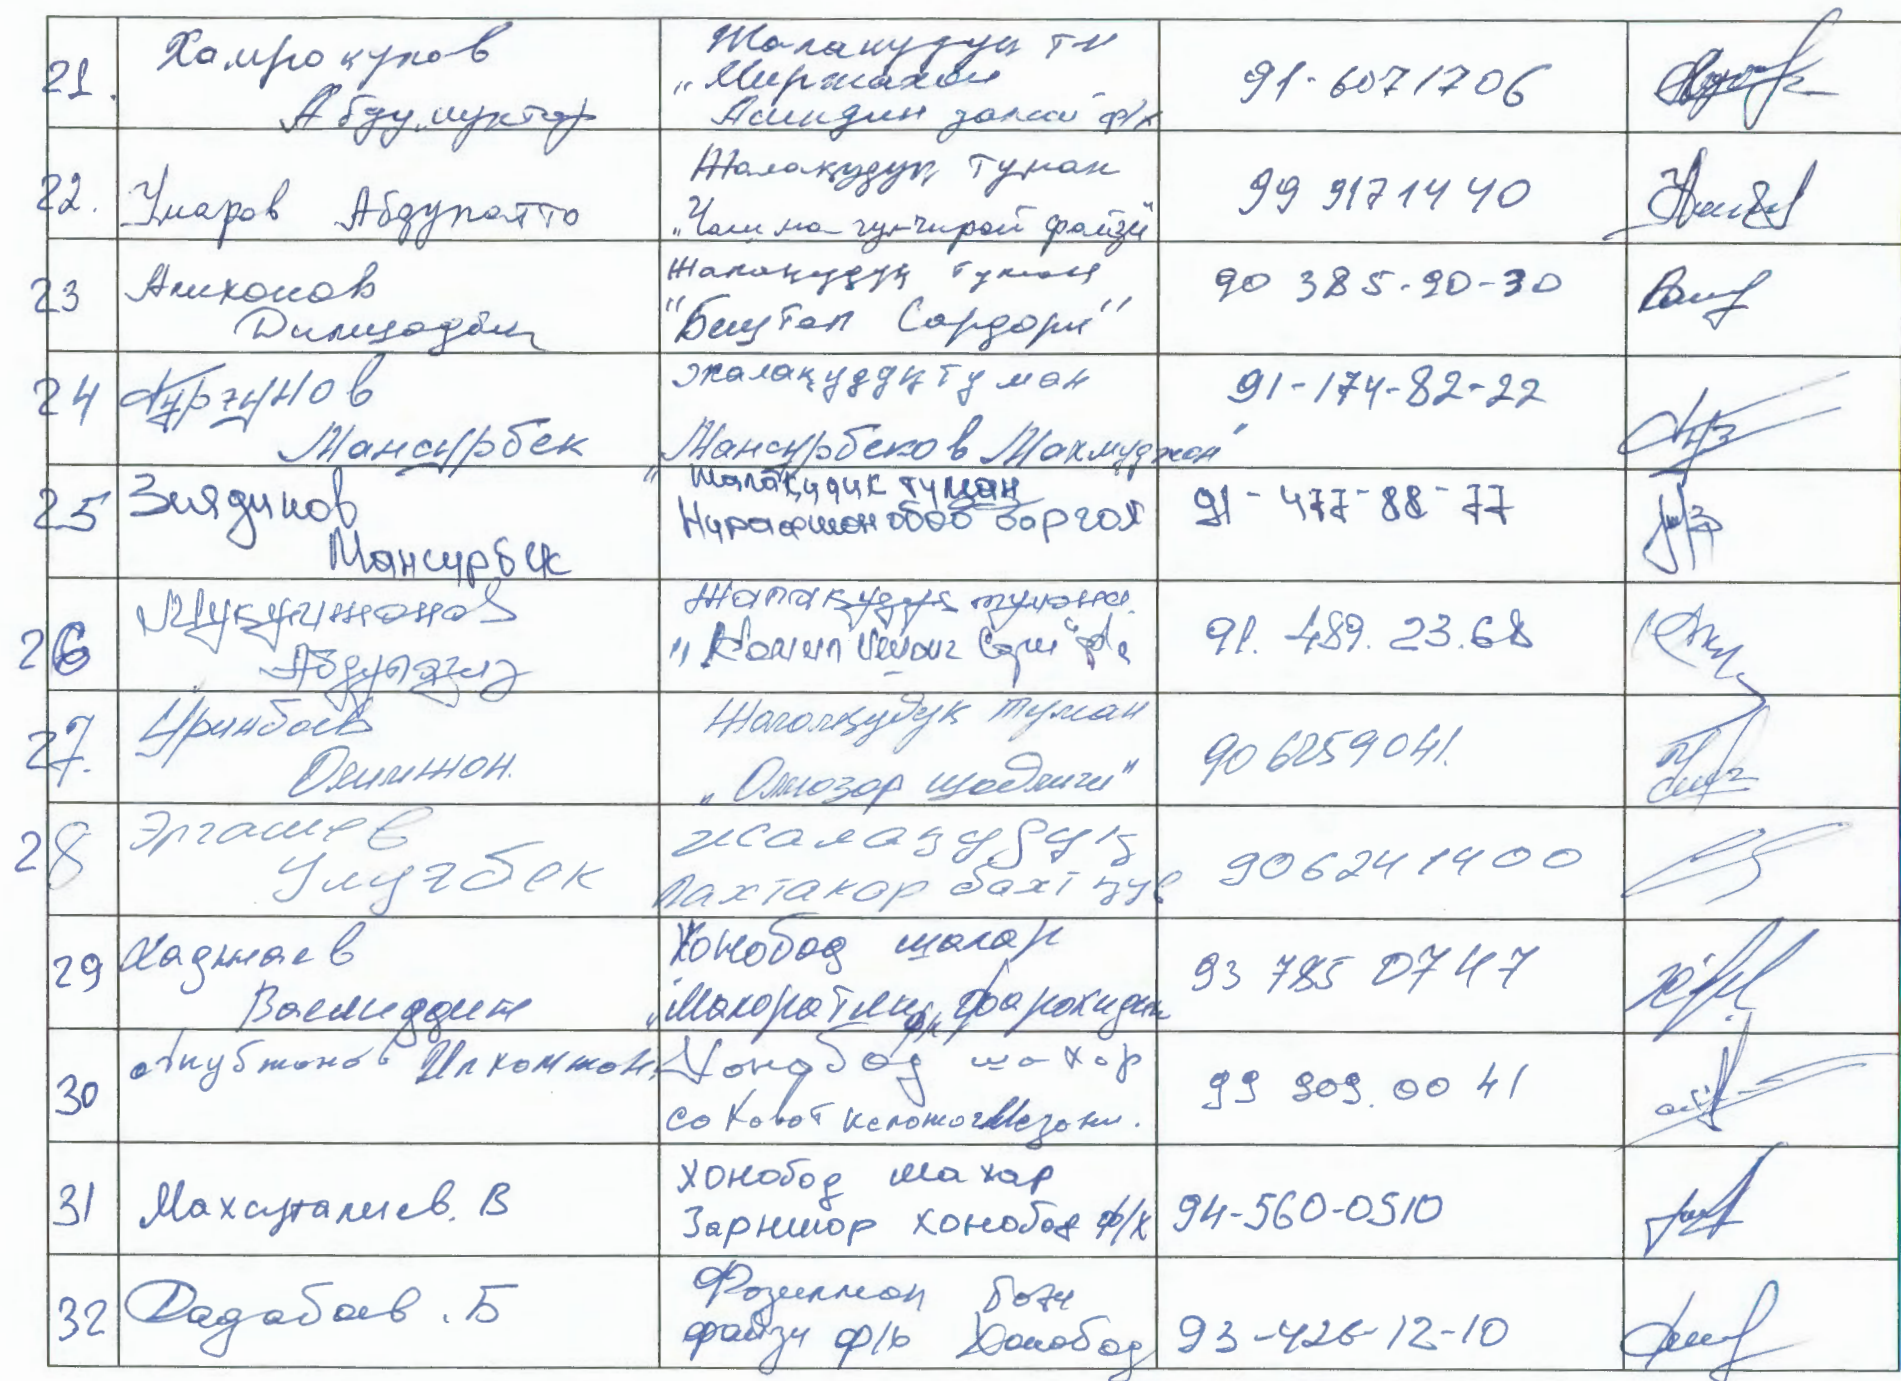 21.
Хамрокулов
Абдумухтор
Жалакудук тн
„Миржахон
Асилдин замин" ф/х
91-6071706
22.
Умаров Абдулатто
Жалақудуқ туман
„Чашма-чунчирой файзи"
99 917 14 40
23
Алихонов
Дилшодбек
Жалақудуқ туман
"Бештол Сардори"
90 385-90-30
24
Турғунов
Мансурбек
жалақудуқ туман
„Мансурбеков Махмуджон"
91-174-82-22
25
Зиядинов
Мансурбек
Жалақудуқ туман
Нурафшонобод боргох
91-477-88-77
26
Мукумжонов
Абдулазиз
Жалақудуқ тумани
91.489.23.68
27.
Уринбоев
Олимжон.
Жалолқудуқ туман
„Олмозор шодлиги"
90 6259041.
28
Эргашев
Улугбек
жалақудуқ
Пахтакор бахт қув
906241400
29
Хаджаев
Васлиддин
Хонобод шахар
93 785 07 47
30
Аюбжонов Илхомжон.
Хонобод шахор
99 909.00 41
31
Махсуталиев. В
Хонобод шахар
Зарншор хонобод ф/х
94-560-0510
32
Дадабоев. Б
Фозилжон боғи
файзи ф/х Хонобод
93-426-12-10